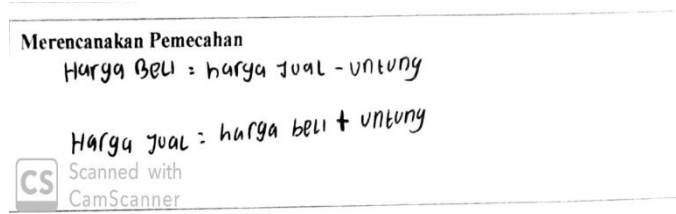 Merencanakan Pemecahan
Harga Beli = harga Jual - untung
Harga Jual = harga beli + untung
CS Scanned with
CamScanner